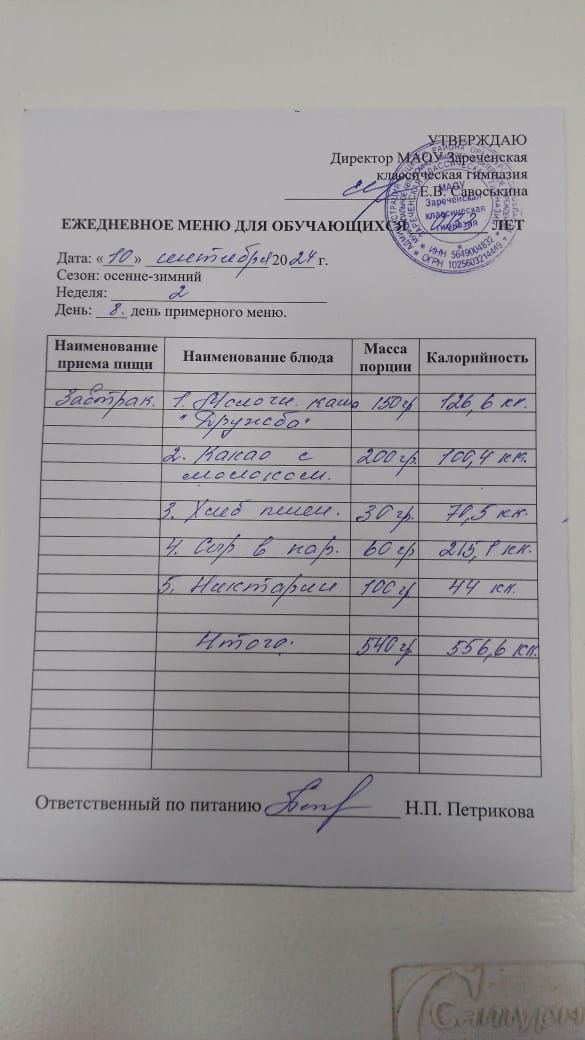 УТВЕРЖДАЮ
Директор МАОУ Зареченская
классическая гимназия
Е.В. Савоськина
МАОУ
Зареченская
классическая
гимназия
* ИНН 5649004832 *
* ОГРН 1025603214449 *
ЕЖЕДНЕВНОЕ МЕНЮ ДЛЯ ОБУЧАЮЩИХСЯ ЛЕТ
Дата: «10» сентября 2024 г.
Сезон: осенне-зимний
Неделя: 2
День: 8. день примерного меню.
Наименование приема пищи Наименование блюда Масса порции Калорийность
Завтрак. 1. Молочн. каша 150гр 126,6 кк.
"Дружба"
2. Какао с 200гр. 100,4 кк.
молоком.
3. Хлеб пшен. 30 гр. 70,5 кк.
4. Сыр в нар. 60 гр 215,1 кк.
5. Никтарин 100 гр 44 кк.
Итого: 540 гр 556,6 кк.
Ответственный по питанию Н.П. Петрикова